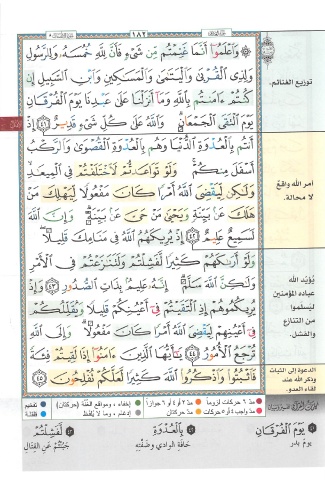 ١٨٢
وَاعْلَمُوا أَنَّمَا غَنِمْتُم مِّن شَيْءٍ فَأَنَّ لِلَّهِ خُمُسَهُ وَلِلرَّسُولِ
وَلِذِي الْقُرْبَىٰ وَالْيَتَامَىٰ وَالْمَسَاكِينِ وَابْنِ السَّبِيلِ إِن
كُنتُمْ آمَنتُم بِاللَّهِ وَمَا أَنزَلْنَا عَلَىٰ عَبْدِنَا يَوْمَ الْفُرْقَانِ
يَوْمَ الْتَقَى الْجَمْعَانِ وَاللَّهُ عَلَىٰ كُلِّ شَيْءٍ قَدِيرٌ ٤١ إِذْ
أَنتُم بِالْعُدْوَةِ الدُّنْيَا وَهُم بِالْعُدْوَةِ الْقُصْوَىٰ وَالرَّكْبُ
أَسْفَلَ مِنكُمْ وَلَوْ تَوَاعَدتُّمْ لَاخْتَلَفْتُمْ فِي الْمِيعَادِ
وَلَٰكِن لِّيَقْضِيَ اللَّهُ أَمْرًا كَانَ مَفْعُولًا لِّيَهْلِكَ مَنْ
هَلَكَ عَن بَيِّنَةٍ وَيَحْيَىٰ مَنْ حَيَّ عَن بَيِّنَةٍ وَإِنَّ اللَّهَ
لَسَمِيعٌ عَلِيمٌ ٤٢ إِذْ يُرِيكَهُمُ اللَّهُ فِي مَنَامِكَ قَلِيلًا
وَلَوْ أَرَاكَهُمْ كَثِيرًا لَّفَشِلْتُمْ وَلَتَنَازَعْتُمْ فِي الْأَمْرِ
وَلَٰكِنَّ اللَّهَ سَلَّمَ إِنَّهُ عَلِيمٌ بِذَاتِ الصُّدُورِ ٤٣ وَإِذْ
يُرِيكُمُوهُمْ إِذِ الْتَقَيْتُمْ فِي أَعْيُنِكُمْ قَلِيلًا وَيُقَلِّلُكُمْ
فِي أَعْيُنِهِمْ لِيَقْضِيَ اللَّهُ أَمْرًا كَانَ مَفْعُولًا وَإِلَى اللَّهِ
تُرْجَعُ الْأُمُورُ ٤٤ يَا أَيُّهَا الَّذِينَ آمَنُوا إِذَا لَقِيتُمْ فِئَةً
فَاثْبُتُوا وَاذْكُرُوا اللَّهَ كَثِيرًا لَّعَلَّكُمْ تُفْلِحُونَ ٤٥
توزيع الغنائم.
أمر الله واقع
لا محالة.
يُؤيّد الله
عباده المؤمنين
ليسلموا
من التنازع
والفشل.
الدعوة إلى الثبات
وذكر الله عند
لقاء العدو.
مدّ ٦ حركات لزوماً
مدّ ٢ أو ٤ أو ٦ جوازاً
إخفاء، ومواقع الغُنَّة (حركتان)
تفخيم
مدّ واجب ٤ أو ٥ حركات
مدّ حركتان
إدغام، وما لا يُلفَظ
قلقلة
يَوْمَ الْفُرْقَانِ
يوم بدر
بِالْعُدْوَةِ
حافة الوادي وضفّته
لَّفَشِلْتُمْ
جبنتم عن القتال